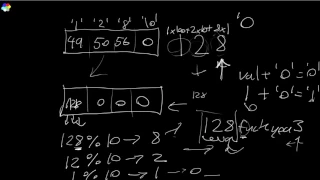 '1' '2' '8' '\0'
49 50 56 0
1x100+2x10+8x1
128
'0'
val + '0' = '0'
1 + '0' = '1'
0 0 0
128
128
3
128 % 10 → 8
12 % 10 → 2
1 % 10 → 1 → 0